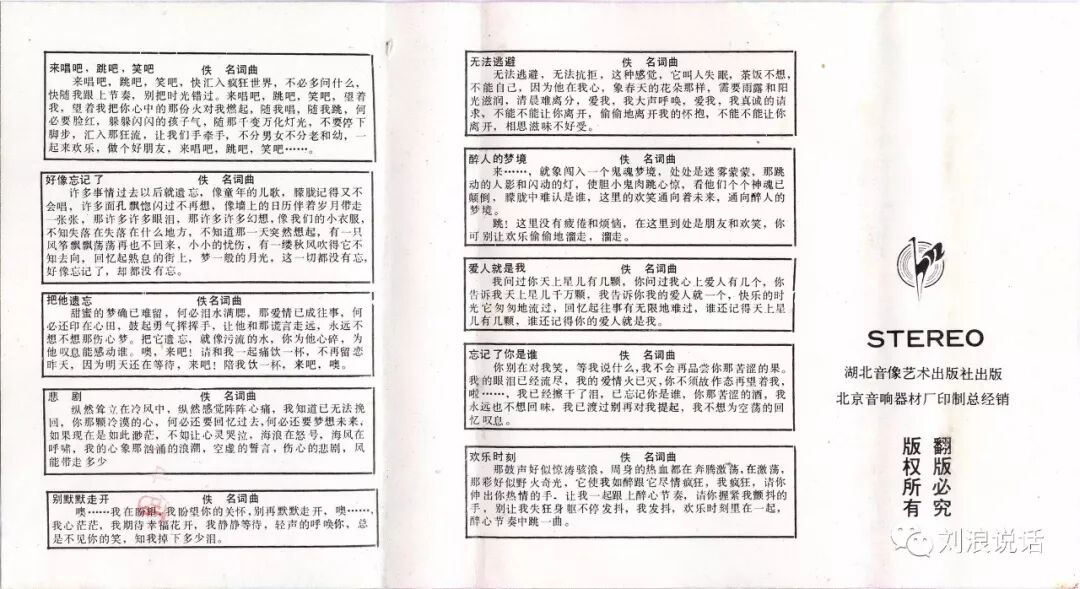 来唱吧，跳吧，笑吧 佚 名词曲
来唱吧，跳吧，笑吧，快汇入疯狂世界，不必多问什么，
快随我跟上节奏，别把时光错过。来唱吧，跳吧，笑吧，望着
我，望着我把你心中的那份火对我燃起，随我唱，随我跳，何
必要脸红，躲躲闪闪的孩子气，随那千变万化灯光，不要停下
脚步，汇入那狂流，让我们手牵手，不分男女不分老和幼，一
起来欢乐，做个好朋友，来唱吧，跳吧，笑吧……。
好像忘记了 佚 名词曲
许多事情过去以后就遗忘，像童年的儿歌，朦胧记得又不
会唱，许多面孔飘惚闪过不再想，像墙上的日历伴着岁月带走
一张张，那许多许多眼泪，那许多许多幻想，像我们的小衣服，
不知失落在失落在什么地方，不知道那一天突然想起，有一只
风筝飘飘荡荡再也不回来，小小的忧伤，有一缕秋风吹得它不
知去向，回忆起熟息的街上，梦一般的月光，这一切都没有忘，
好像忘记了，却都没有忘。
把他遗忘 佚 名词曲
甜蜜的梦确已难留，何必泪水满腮，那爱情已成往事，何
必还印在心田，鼓起勇气挥挥手，让他和那谎言走远，永远不
想不想那伤心梦。把它遗忘，就像污流的水，你为他心碎，为
他叹息能感动谁。噢，来吧！请和我一起痛饮一杯，不再留恋
昨天，因为明天还在等待，来吧！陪我饮一杯，来吧，噢。
悲 剧 佚 名词曲
纵然耸立在冷风中，纵然感觉阵阵心痛，我知道已无法挽
回，你那颗冷漠的心，何必还要回忆过去，何必还要梦想未来，
如果现在是如此渺茫，不如让心灵哭泣，海浪在怒号，海风在
呼啸，我的心象那汹涌的浪潮，空虚的誓言，伤心的悲剧，风
能带走多少
别默默走开 佚 名词曲
噢……我在盼望，我盼望你的关怀，别再默默走开，噢……，
我心茫茫，我期待幸福花开，我静静等待，轻声的呼唤你，总
是不见你的笑，知我掉下多少泪。
无法逃避 佚 名词曲
无法逃避，无法抗拒，这种感觉，它叫人失眠，茶饭不想，
不能自己，因为他在我心，象春天的花朵那样，需要雨露和阳
光滋润，清晨难离分，爱我，我大声呼唤，爱我，我真诚的请
求，不能不能让你离开，偷偷地离开我的怀抱，不能不能让你
离开，相思滋味不好受。
醉人的梦境 佚 名词曲
来……，就象闯入一个鬼魂梦境，处处是迷雾蒙蒙，那跳
动的人影和闪动的灯，使胆小鬼肉跳心惊，看他们个个神魂已
颠倒，朦胧中难认是谁，这里的欢笑通向着未来，通向醉人的
梦境。
跳！这里没有疲倦和烦恼，在这里到处是朋友和欢笑，你
可别让欢乐偷偷地溜走，溜走。
爱人就是我 佚 名词曲
我问过你天上星儿有几颗，你问过我心上爱人有几个，你
告诉我天上星儿千万颗，我告诉你我的爱人就一个，快乐的时
光它匆匆地流过，回忆起往事有无限地难过，谁还记得天上星
儿有几颗，谁还记得你的爱人就是我。
忘记了你是谁 佚 名词曲
你别在对我笑，等我说什么，我不会再品尝你那苦涩的果。
我的眼泪已经流尽，我的爱情火已灭，你不须故作态再望着我，
啦……，我已经擦干了泪，已忘记你是谁，你那苦涩的酒，我
永远也不想回味，我已渡过别再对我提起，我不想为空荡的回
忆叹息。
欢乐时刻 佚 名词曲
那鼓声好似惊涛骇浪，周身的热血都在奔腾激荡，在激荡，
那彩好似野火奇光，它使我如醉跟它尽情疯狂，我疯狂，请你
伸出你热情的手，让我一起跟上醉心节奏，请你握紧我颤抖的
手，别让我失狂身躯不停发抖，我发抖，欢乐时刻里在一起，
醉心节奏中跳一曲。
STEREO
湖北音像艺术出版社出版
北京音响器材厂印制总经销
版权所有
翻版必究
刘浪说话